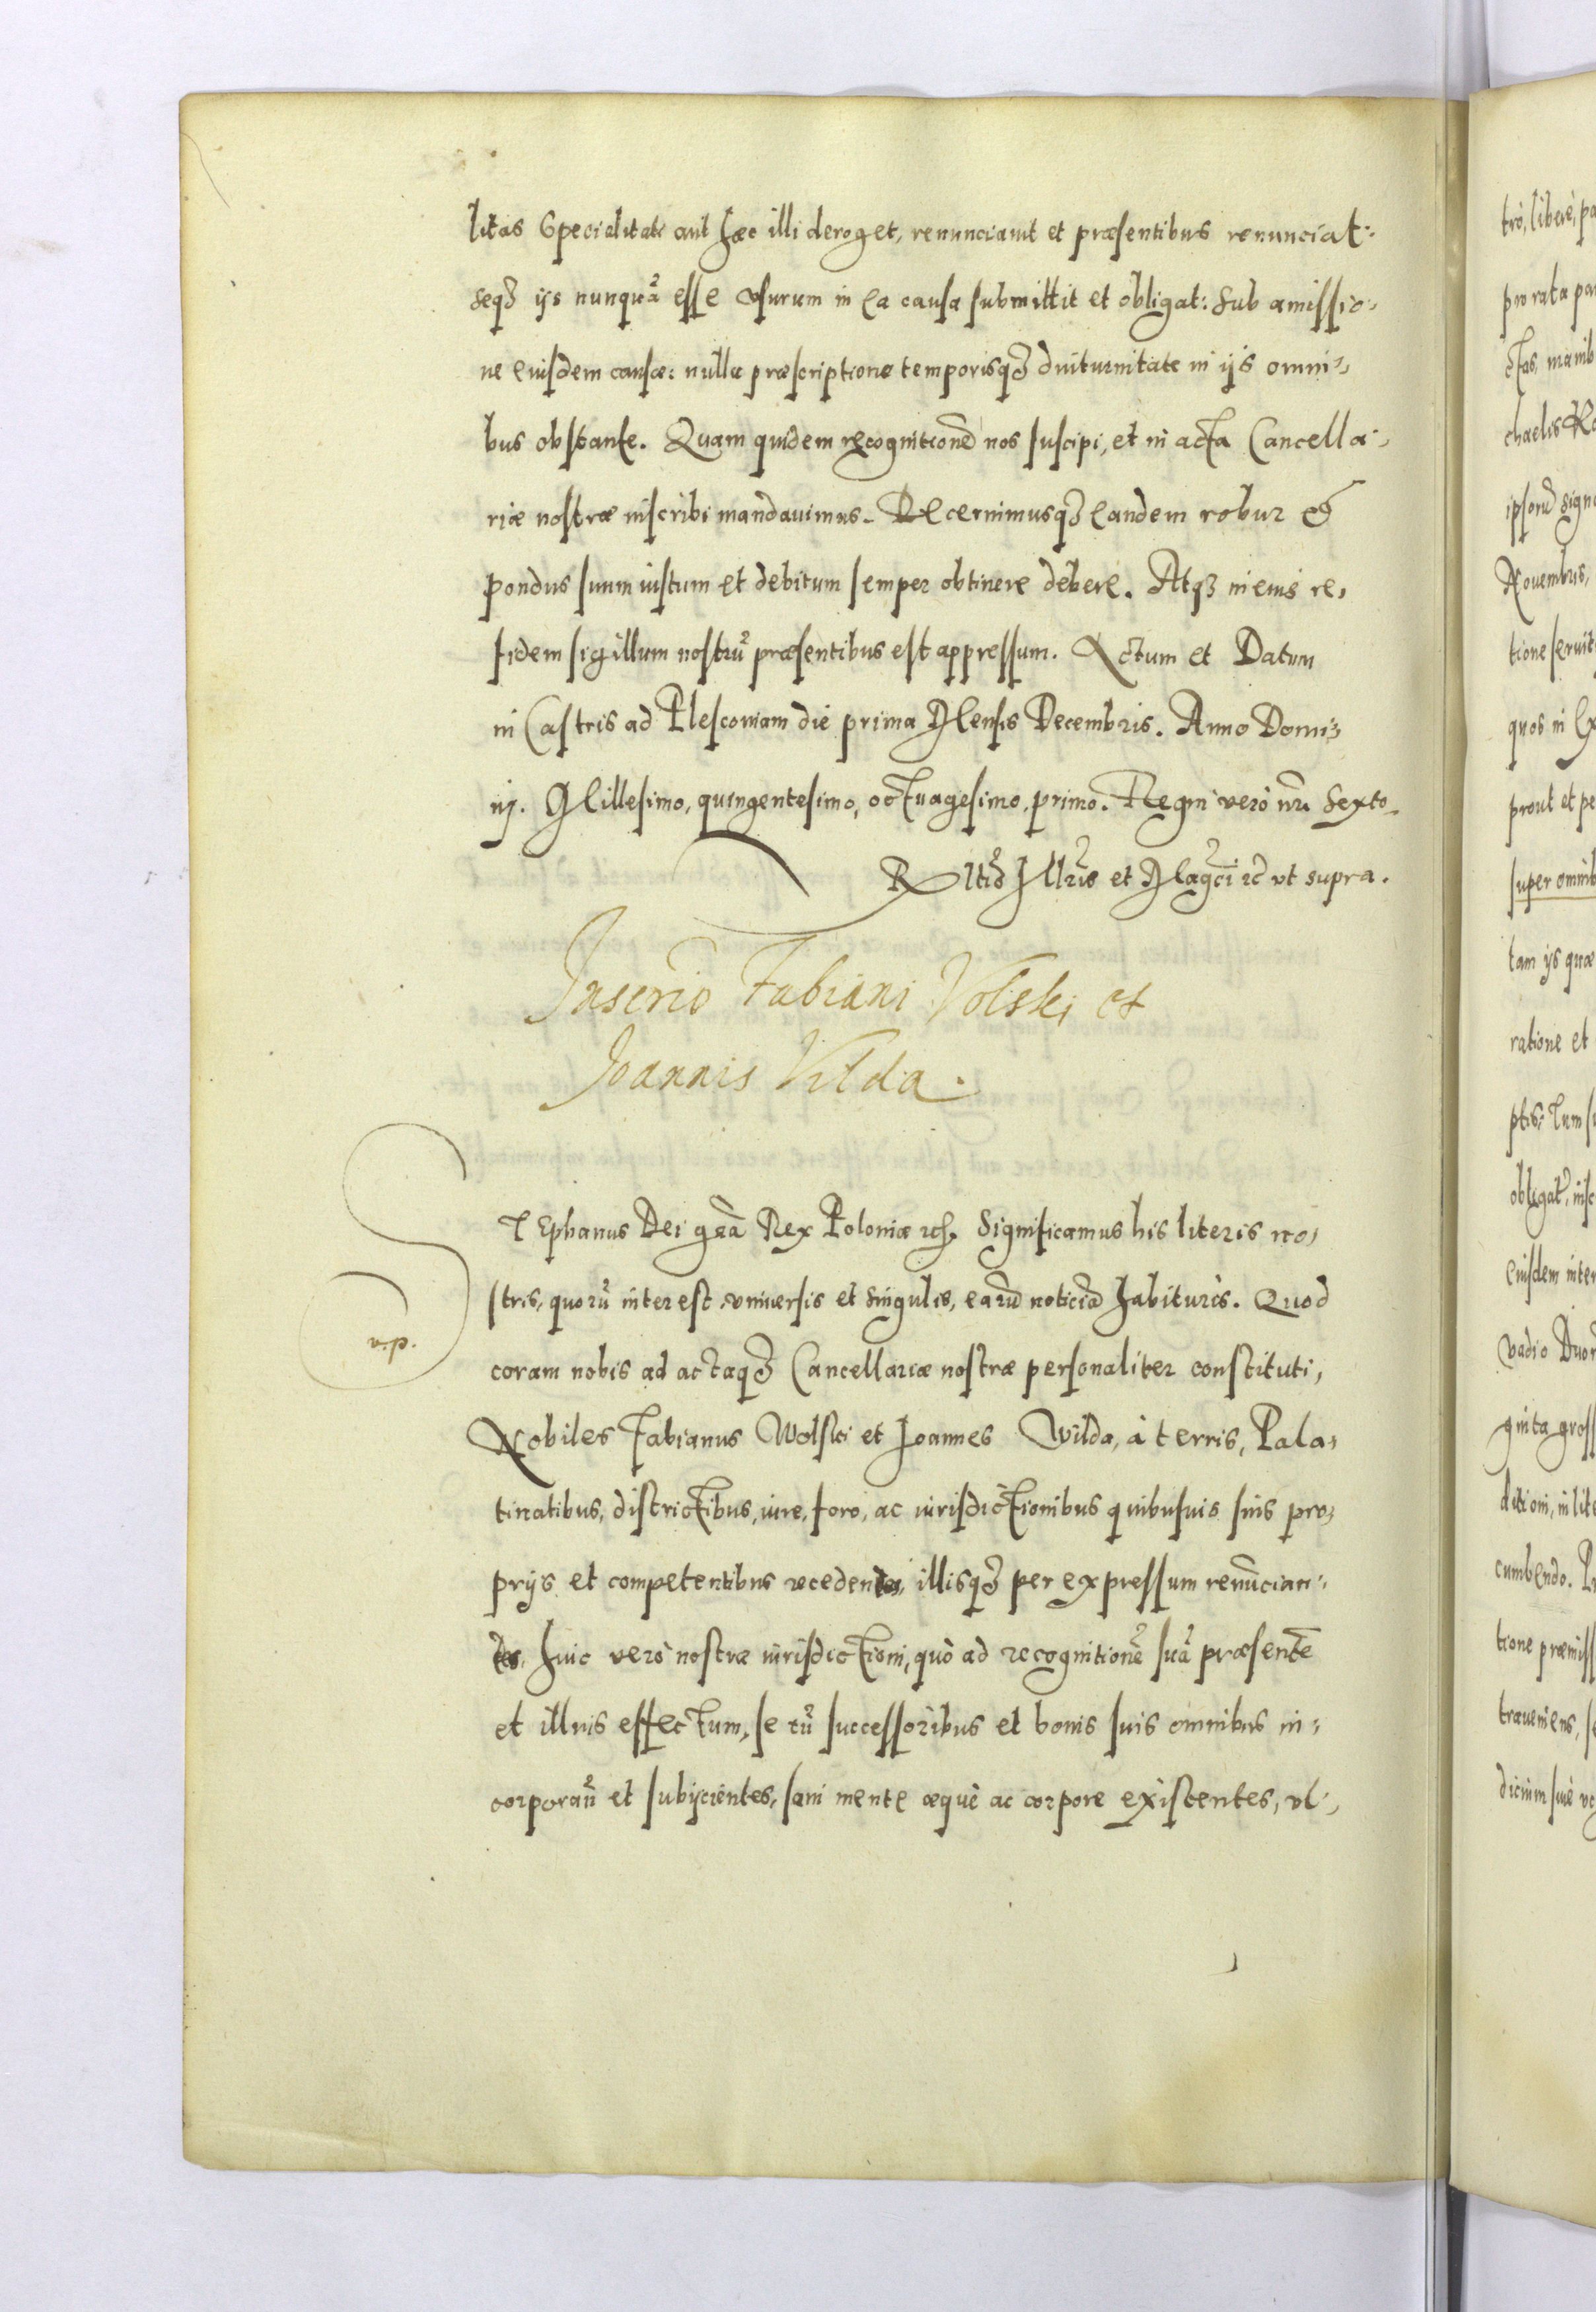 litas specialitati aut hæc illi deroget, renunciauit et præsentibus renunciat:
seqȝ ijs nunquã esse vsurum in ea causa submittit et obligat: sub amissio-
ne eiusdem causæ: nulla præscriptione temporisqȝ diuturnitate in ijs omni-
bus obstante. Quam quidem recognitionẽ nos suscipi, et in acta Cancella-
riæ nostræ inscribi mandauimus. Decernimusqȝ eandem robur et
pondus suum iustum et debitum semper obtinere debere. Atqȝ in eius re,
fidem sigillum nostrũ præsentibus est appressum. Actum et Datum
in Castris ad Plescouiam die prima Mensis Decembris. Anno Domi-
nj. Millesimo, quingentesimo, octuagesimo, primo. Regni verò nrĩ Sexto.
Rltio Illris et Magci ꝛc vt supra.
Inscrio Fabiani Volski et
Joannis Vilda.
STEphanus Dei grã Rex Poloniæ ꝛc. Significamus his literis no-
stris, quorũ interest vniuersis et singulis, earũ noticiã habituris. Quod
v.p.
coram nobis ad actaqȝ Cancellariæ nostræ personaliter constituti,
Nobiles Fabianus Wolski et Joannes Wilda, à terris, Pala-
tinatibus, districtibus, iure, foro, ac iurisdictionibus quibusuis suis pro-
prijs et competentibus recedentes, illisqȝ per expressum renũcian-
tes, huic verò nostræ iurisdictioni, quò ad recognitionẽ suã præsentẽ
et illius effectum, se cũ successoribus et bonis suis omnibus in-
corporañ et subijcientes, sani mente æquè ac corpore existentes, vl-